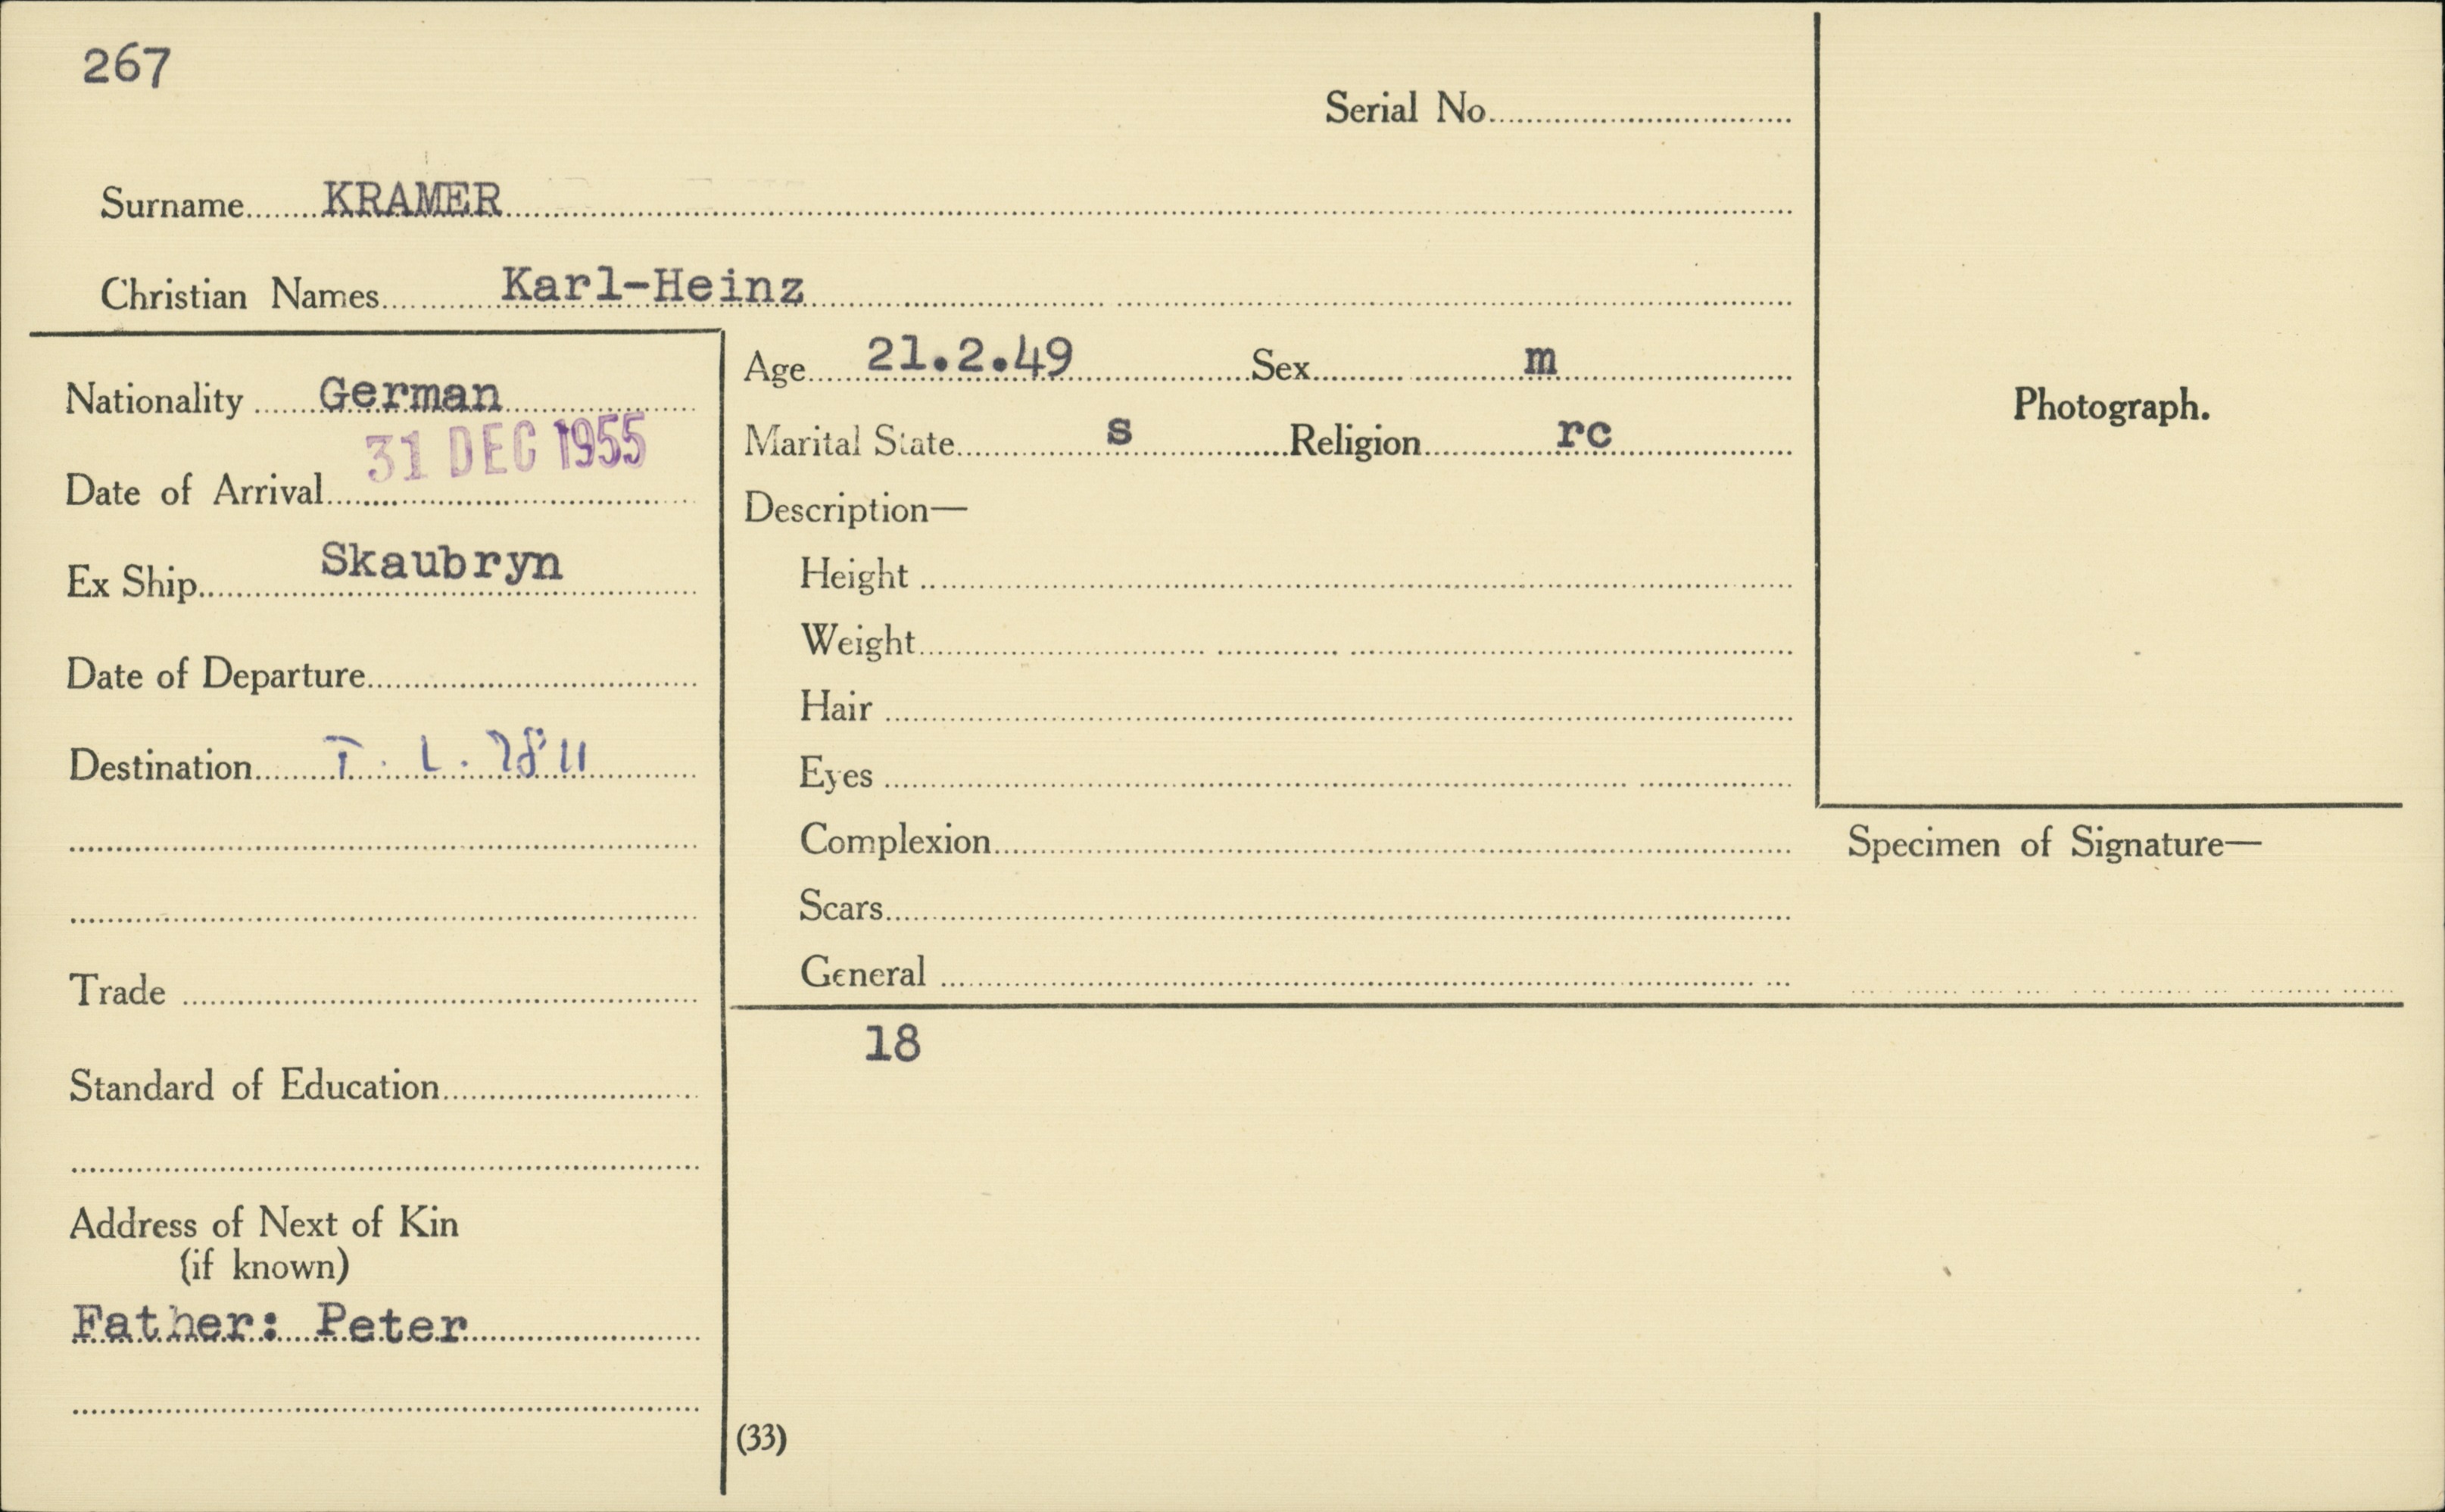 267
Serial No.
Surname KRAMER
Christian Names Karl-Heinz
Nationality German
Date of Arrival 31 DEC 1955
Ex Ship Skaubryn
Date of Departure
Destination T. L. 7811
Trade
Standard of Education
Address of Next of Kin
(if known)
Father: Peter
Age 21.2.49 Sex m
Marital State s Religion rc
Description—
Height
Weight
Hair
Eyes
Complexion
Scars
General
18
(33)
Photograph.
Specimen of Signature—